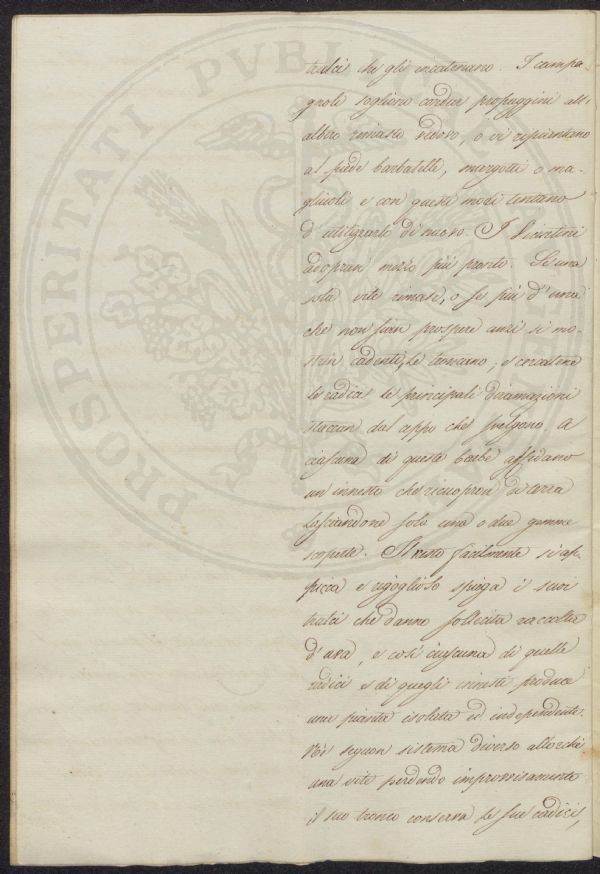 tralci che gli incatenano. I campa-
gnoli sogliono condur propaggini all'
albero rimasto vedovo, o vi ripiantano
al piede barbatelle, margotti o ma-
gliuoli e con questi modi tentano
d'utilizzarlo di nuovo. I
adopran mezzo più pronto. Se una
sola vite rimase, o se più d'una
che non sian prospere anzi si mo-
strin cadenti, le troncano, e
le radici le principali diramazioni
staccan dal ceppo che svelgono. A
ciascuna di queste barbe affidano
un innesto che ricuopron di terra
lasciandone sola una o due gemme
scoperte. Il resto facilmente si ap-
picca e rigoglioso spinga i suoi
tralci che danno sollecita raccolta
d'uva, e così ciascuna di quelle
radici e di quegli innesti produce
una pianta isolata ed independente.
Nè seguon sistema diverso allorchè
una vite perdendo improvvisamente
il suo tronco conserva le sue radici,
PROSPERITATI PUBLICAE